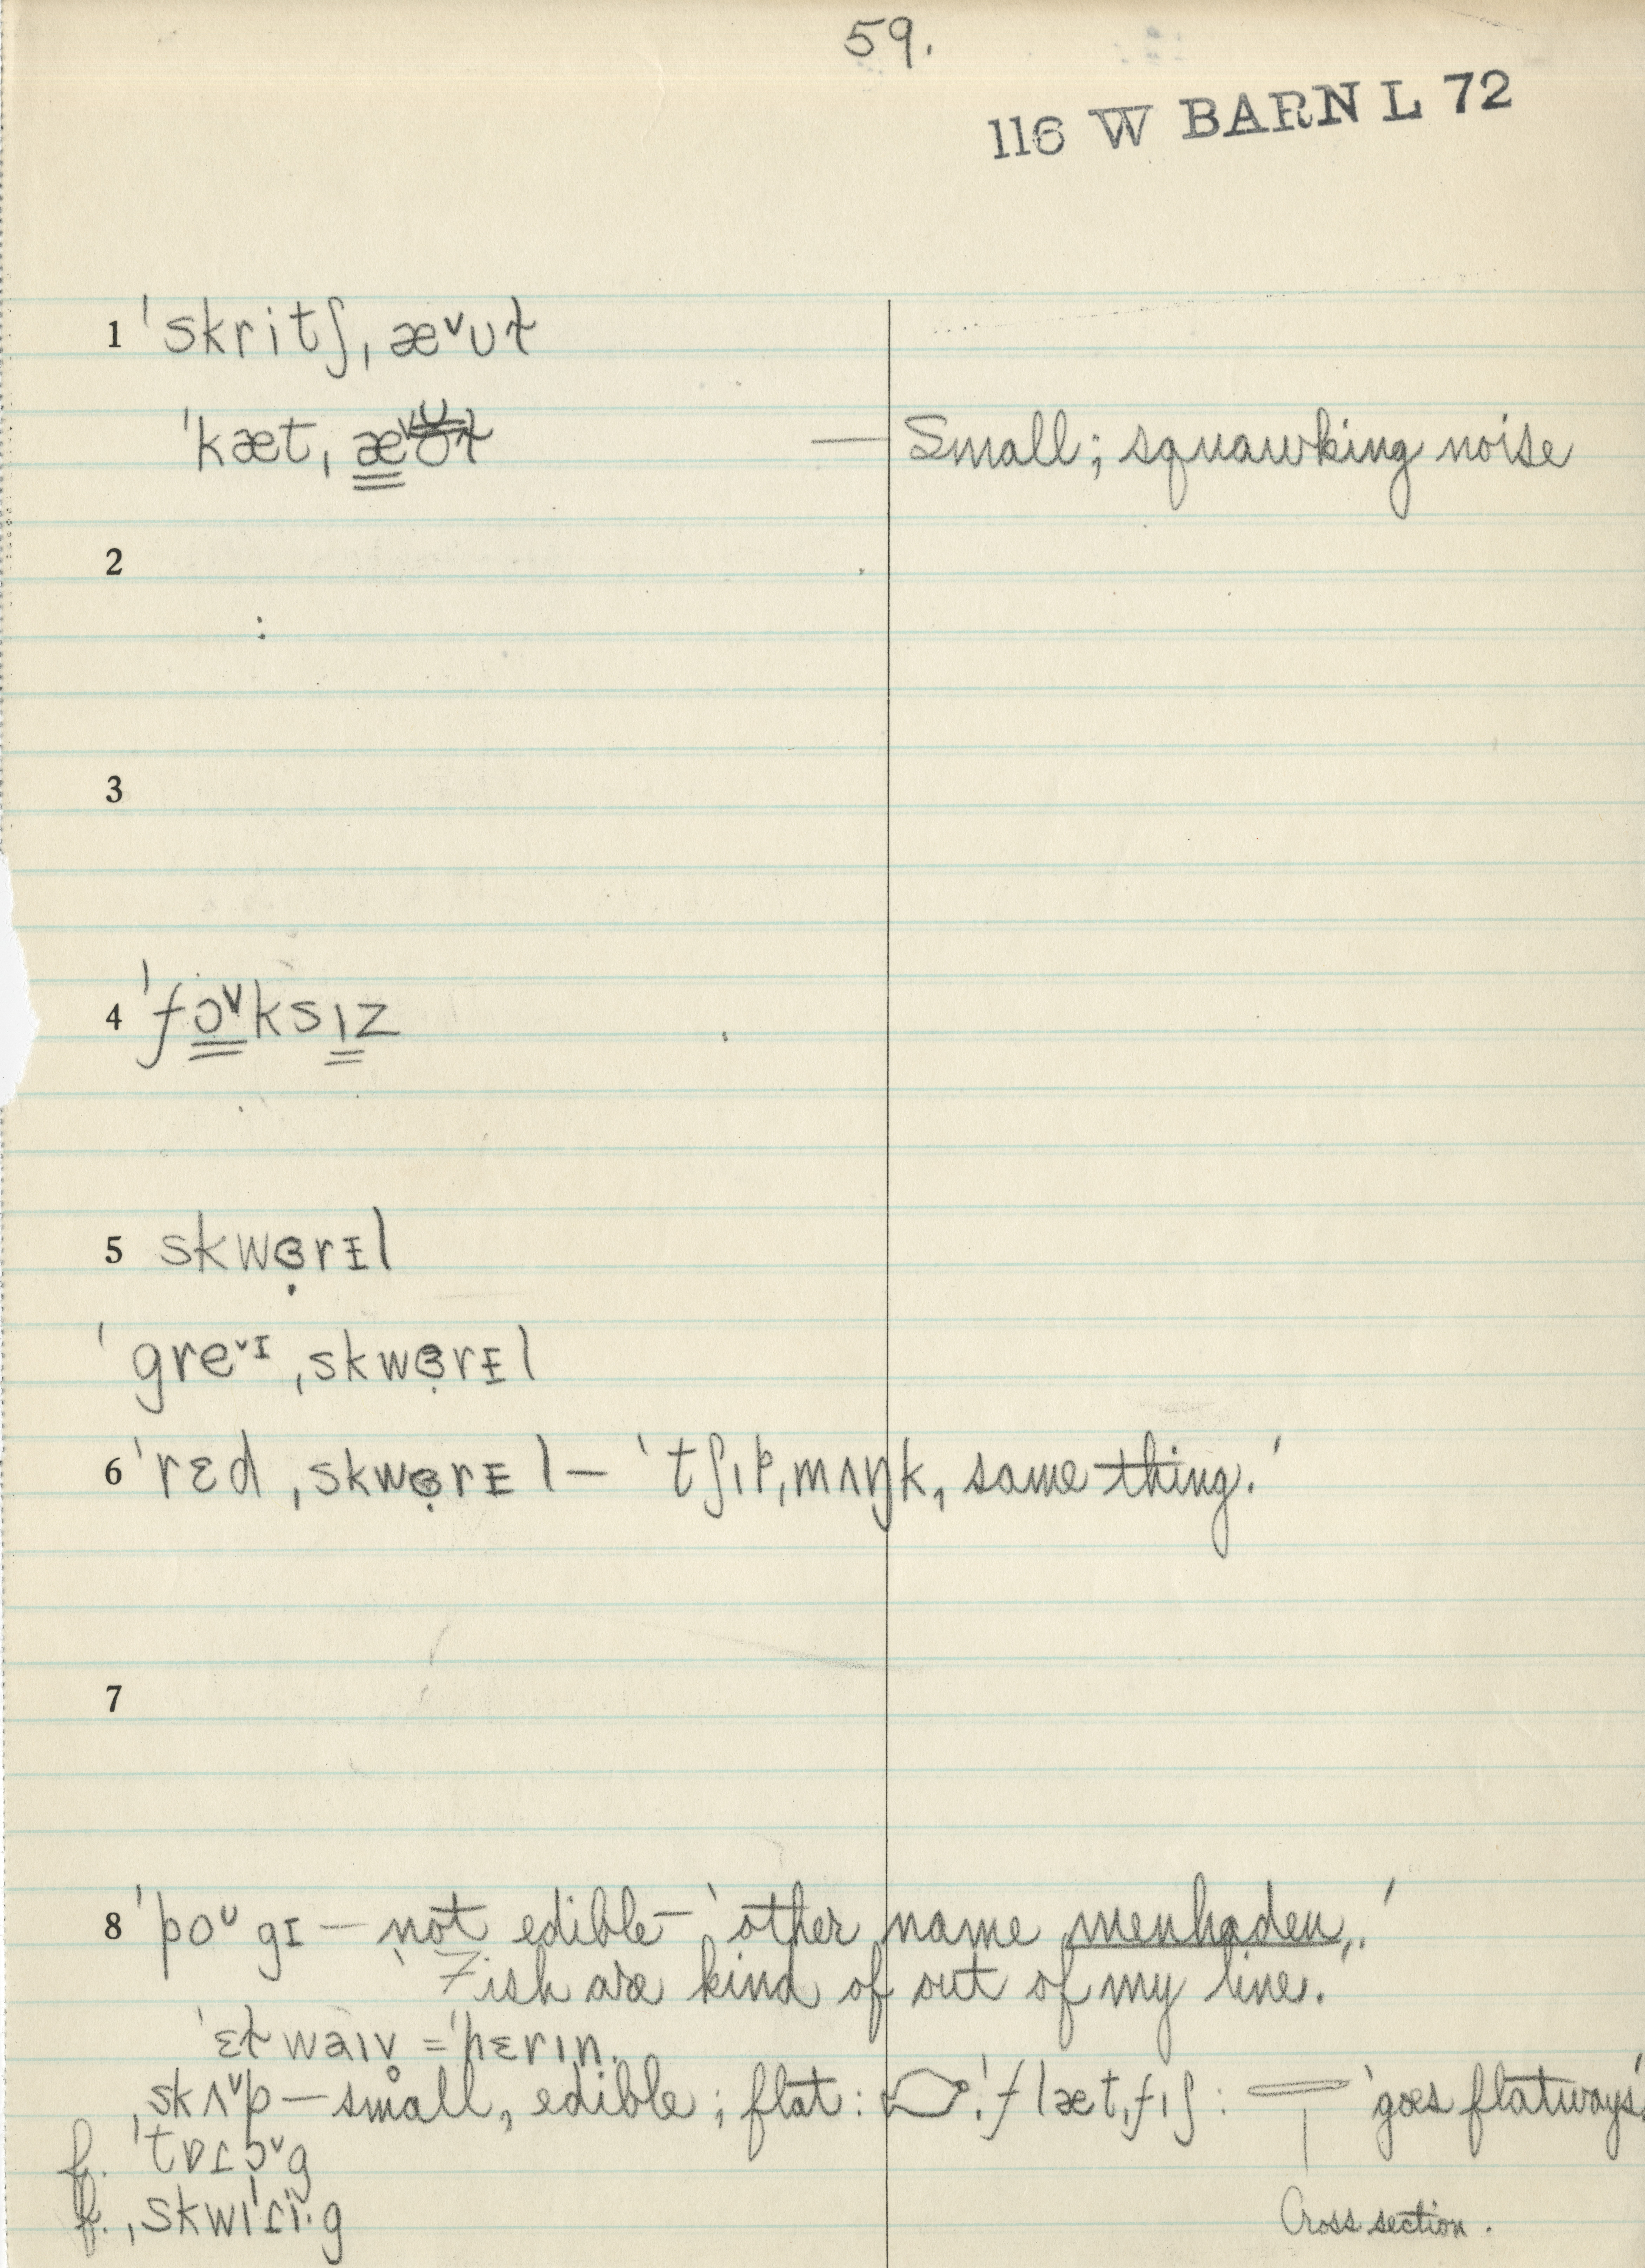 59.
116 W BARN L 72
1 ˈskritʃˌæ˅ʊɫ
ˈkætˌæ˅ʊɫ — Small; squawking noise
2
:
3
4 ˈfɔ˅ksɪz
5 skwɞ̣rᵻl
ˈgre˅ɪ ˌskwɞ̣rᵻl
6 ˈrɛd ˌskwɞ̣rᵻl — 'tʃɪpˌmʌŋk, same thing.'
7
8 ˈpoᴜgɪ — not edible — 'other name menhaden,.'
'Fish are kind of out of my line.
ˈɛɫwaɪv̥ = ˈhɛrɪn.
ˌskʌ˅p — small, edible; flat: ˈflætˌfɪʃ: 'goes flatways'.
f. ˈtɒɾɔ˅g
f. ˌskwɪˈɾi·g
Cross section.